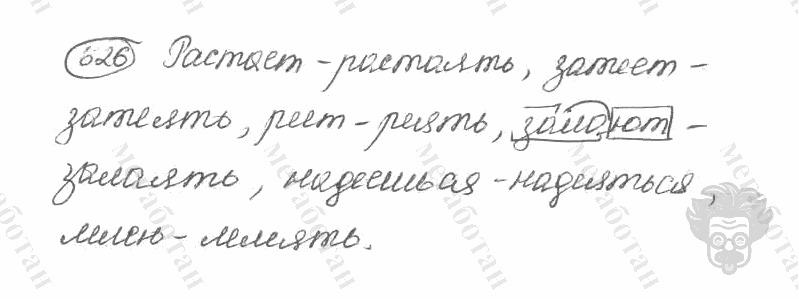 626 Растает - растаять, затеет -
затеять, реет - реять, залают -
залаять, надеешься - надеяться,
млеют - млеять.
мегаботан